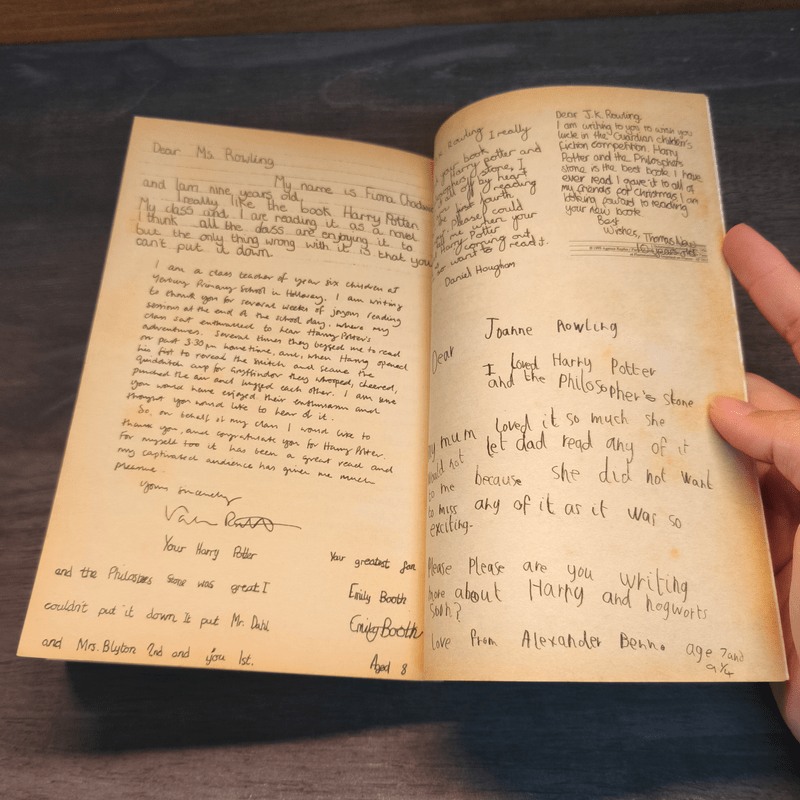 Dear Ms. Rowling
My name is Fiona
and I am nine years old,
I really like the book Harry Potter
My class and I are reading it as a novel
I think all the class are enjoying it to
but the only thing wrong with it is that you
can't put it down.
I am a class teacher of year six children at
Primary School in Holloway. I am writing
to thank you for several weeks of joyous reading
sessions at the end of the school day, where my
class sat enthralled to hear Harry Potter's
adventures. Several times they begged me to read
on past 3:30pm hometime, and, when Harry opened
his fist to reveal the snitch and secure the
quidditch cup for Gryffindor they whooped, cheered,
punched the air and hugged each other. I am sure
you would have enjoyed their enthusiasm and
thought you would like to hear of it.
So, on behalf of my class I would like to
thank you, and congratulate you for Harry Potter.
For myself too it has been a great read and
my captivated audience has given me much
pleasure.
Yours sincerely
Your Harry Potter
and the Philosphes stone was great I
couldn't put it down It put Mr. Dahl
and Mrs. Blyton 2nd and you 1st.
Your greatest fan
Emily Booth
Emily Booth
Aged 8
Rowling I really
your book
Harry potter and
stone, I
off by heart
reading
the first fourth
Please could
me when your
Harry Potter
coming out,
want to read it.
Daniel Hougham
Dear J.K. Rowling,
I am writing to you to wish you
luck in the Guardian children's
fiction competition. Harry
Potter and the Philosphers
stone is the best book I have
ever read I gave it to all of
my friends for christmas. I am
looking forward to reading
your new book.
Best
Wishes, Thomas
10 years old
Joanne Rowling
Dear
I loved Harry Potter
and the Philosopher's stone
my mum loved it so much she
would not let dad read any of it
to me because she did not want
to miss any of it as it was so
exciting.
Please Please are you writing
more about Harry and hogworts
Soon?
Love from Alexander Benn. age 7 and
a 1/4